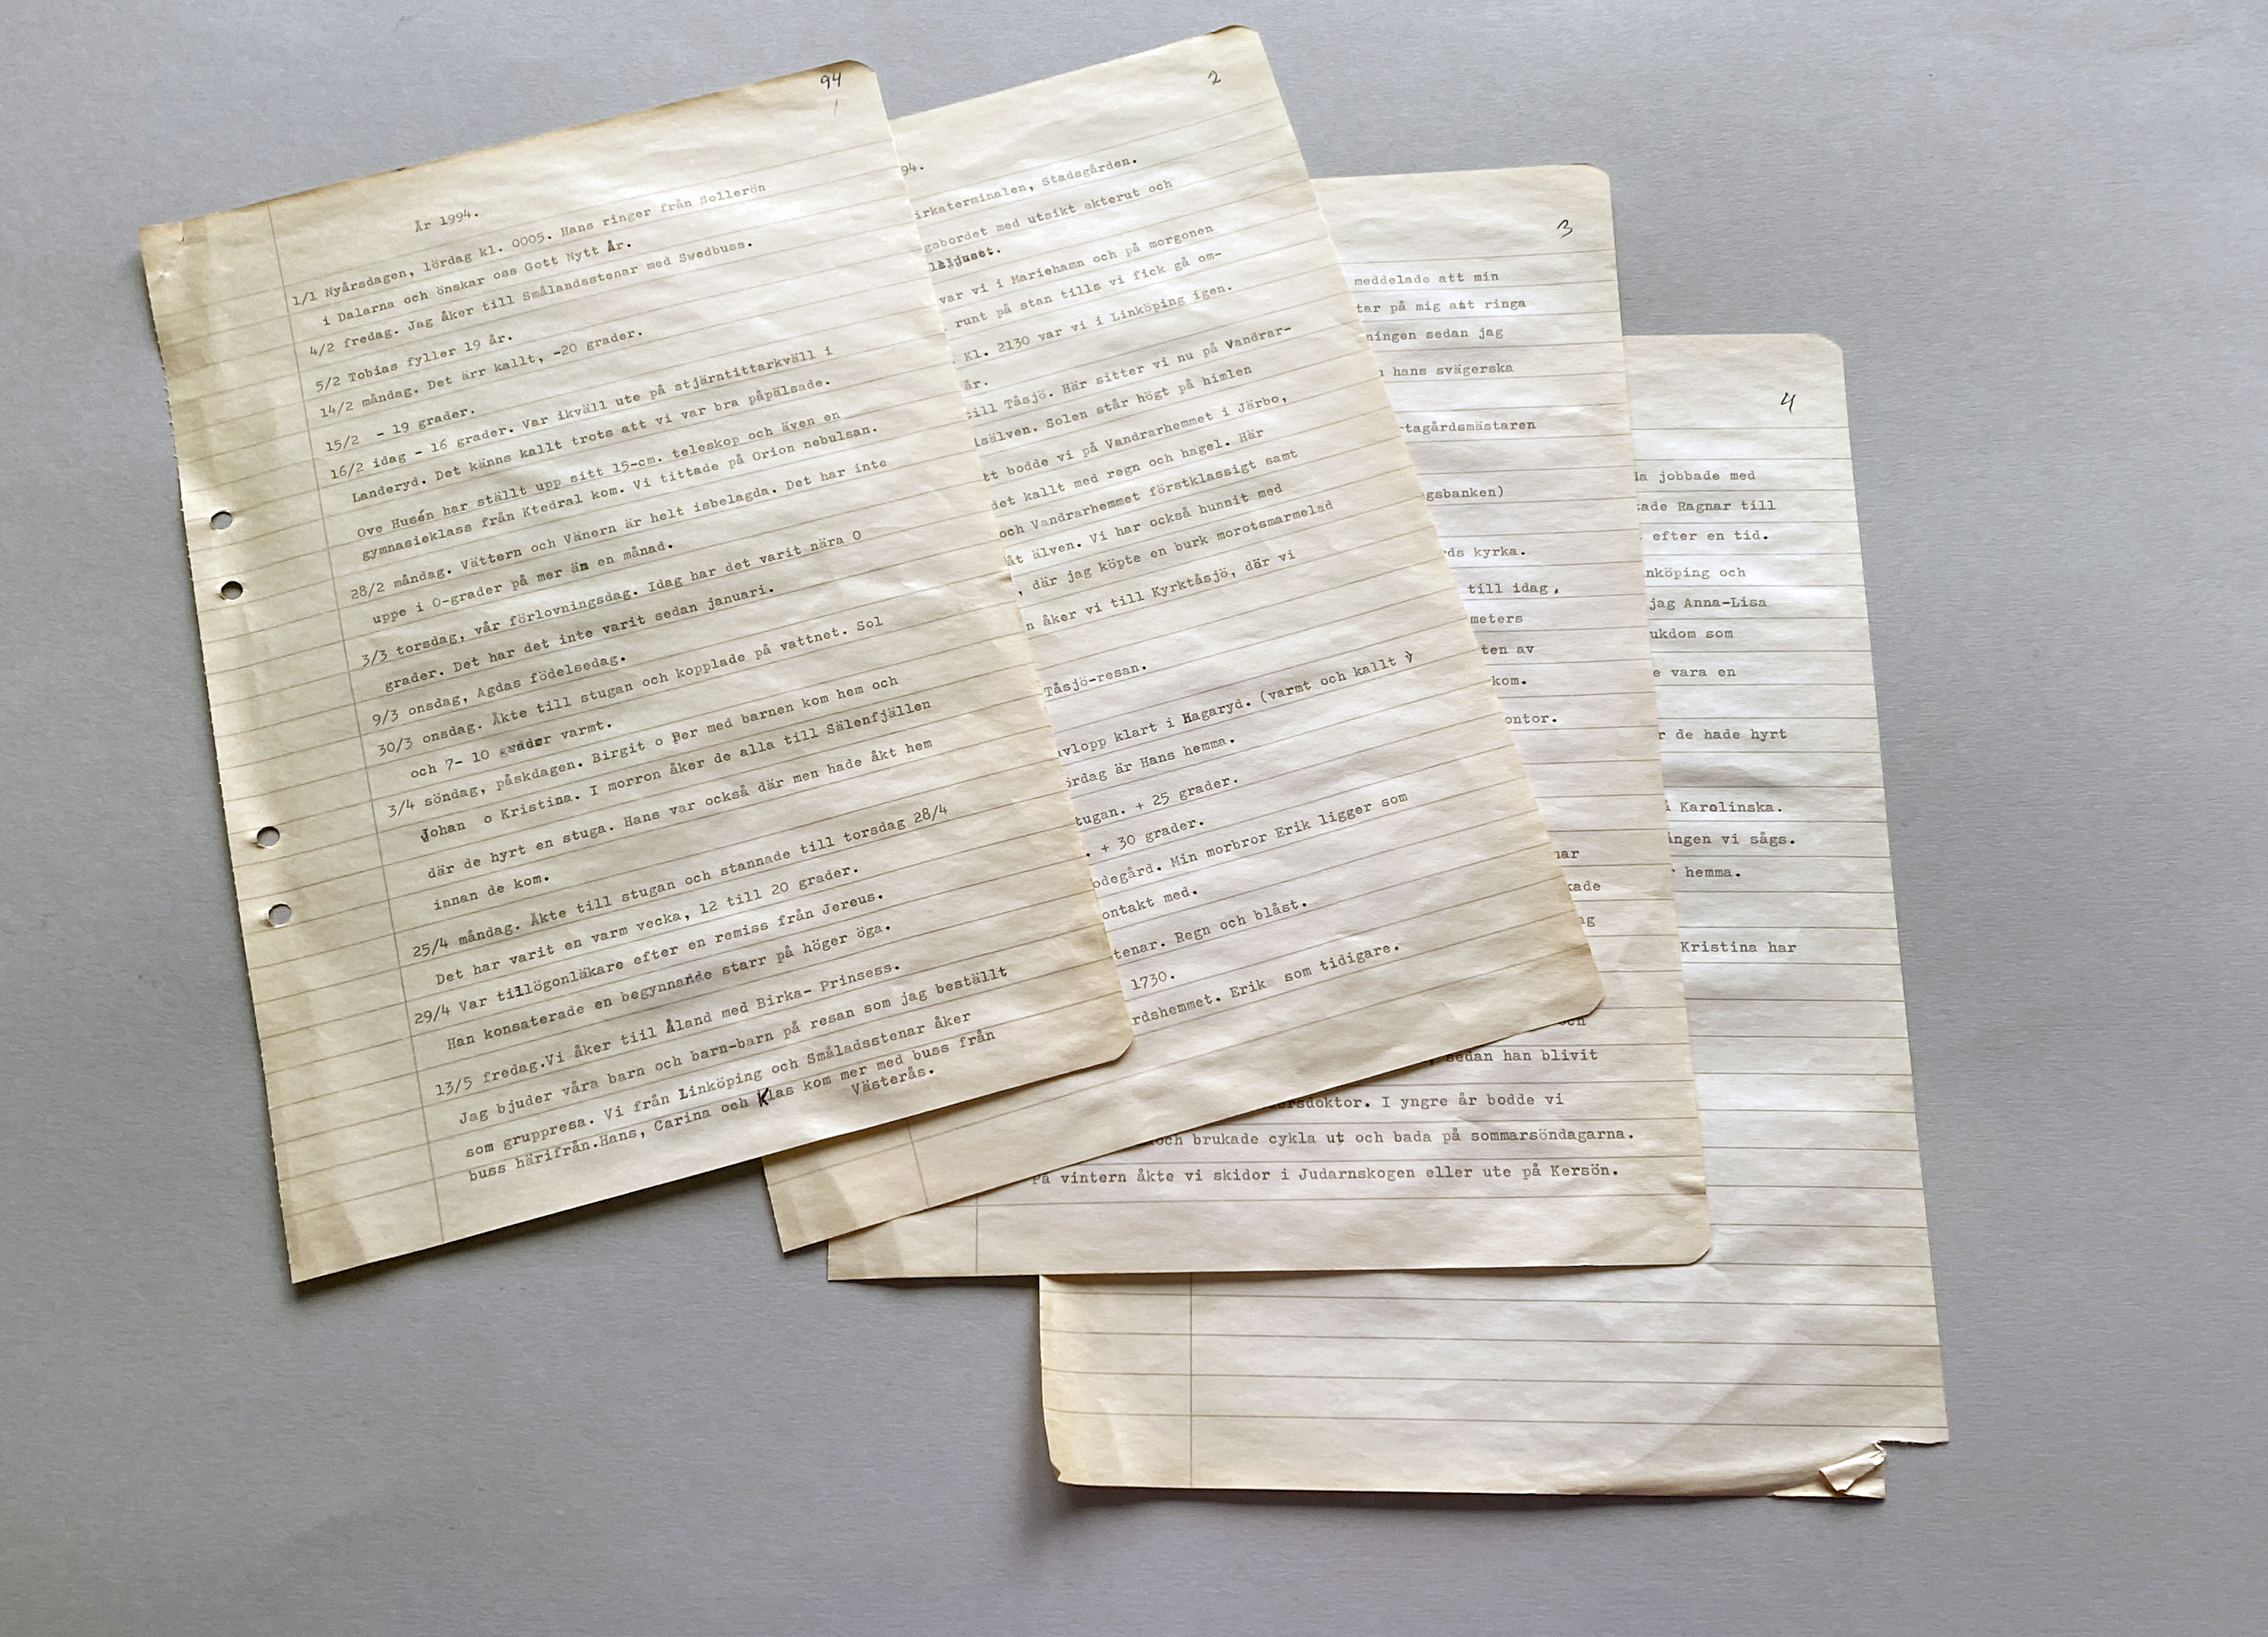 94
År 1994.
1/1 Nyårsdagen, lördag kl. 0005. Hans ringer från Sollerön
i Dalarna och önskar oss Gott Nytt År.
4/2 fredag. Jag åker till Smålandsstenar med Swedbuss.
5/2 Tobias fyller 19 år.
14/2 måndag. Det ärr kallt, -20 grader.
15/2 - 19 grader.
16/2 idag - 16 grader. Var ikväll ute på stjärntittarkväll i
Landeryd. Det känns kallt trots att vi var bra påpälsade.
Ove Husén har ställt upp sitt 15-cm. teleskop och även en
gymnasieklass från Ktedral kom. Vi tittade på Orion nebulsan.
28/2 måndag. Vättern och Vänern är helt isbelagda. Det har inte
uppe i 0-grader på mer än en månad.
3/3 torsdag, vår förlovningsdag. Idag har det varit nära 0
grader. Det har det inte varit sedan januari.
9/3 onsdag, Agdas födelsedag.
30/3 onsdag. Åkte till stugan och kopplade på vattnet. Sol
och 7- 10 grader varmt.
3/4 söndag, påskdagen. Birgit o Per med barnen kom hem och
Johan o Kristina. I morron åker de alla till Sälenfjällen
där de hyrt en stuga. Hans var också där men hade åkt hem
innan de kom.
25/4 måndag. Åkte till stugan och stannade till torsdag 28/4
Det har varit en varm vecka, 12 till 20 grader.
29/4 Var tillögonläkare efter en remiss från Jereus.
Han konsaterade en begynnande starr på höger öga.
13/5 fredag.Vi åker tiil Åland med Birka- Prinsess.
Jag bjuder våra barn och barn-barn på resan som jag beställt
som gruppresa. Vi från Linköping och Småladsstenar åker
buss härifrån.Hans, Carina och Klas kom mer med buss från
Västerås.
2
94.
irkaterminalen, Stadsgården.
gsbordet med utsikt akterut och
var vi i Mariehamn och på morgonen
runt på stan tills vi fick gå om-
. Kl. 2130 var vi i Linköping igen.
år.
till Tåsjö. Här sitter vi nu på Vandrar-
sälven. Solen står högt på himlen
tt bodde vi på Vandrarhemmet i Järbo,
det kallt med regn och hagel. Här
och Vandrarhemmet förstklassigt samt
åt älven. Vi har också hunnit med
, där jag köpte en burk morotsmarmelad
n åker vi till Kyrktåsjö, där vi
Tåsjö-resan.
avlopp klart i Hagaryd. (varmt och kallt
ördag är Hans hemma.
tugan. + 25 grader.
. + 30 grader.
odegård. Min morbror Erik ligger som
ontakt med.
tenar. Regn och blåst.
1730.
rdshemmet. Erik som tidigare.
3
meddelade att min
tar på mig att ringa
ningen sedan jag
hans svägerska
tagårdsmästaren
gsbanken)
rds kyrka.
till idag,
meters
ten av
kom.
ontor.
nar
kade
ng
och
, sedan han blivit
ersdoktor. I yngre år bodde vi
och brukade cykla ut och bada på sommarsöndagarna.
På vintern åkte vi skidor i Judarnskogen eller ute på Kersön.
4
la jobbade med
tade Ragnar till
efter en tid.
nköping och
jag Anna-Lisa
ukdom som
e vara en
r de hade hyrt
i Karolinska.
ången vi sågs.
r hemma.
Kristina har